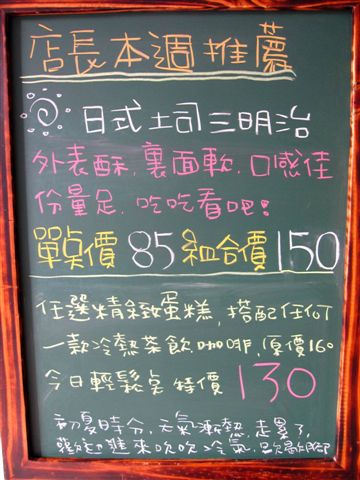 店長本週推薦
日式土司三明治
外表酥.裏面軟.口感佳
份量足.吃吃看吧!
單點價 85 組合價 150
任選精緻蛋糕,搭配任何
一款冷熱茶飲咖啡,原價160
今日輕鬆点特價 130
初夏時分,天氣漸熱,走累了,
歡迎進來吹吹冷氣,歇歇腳